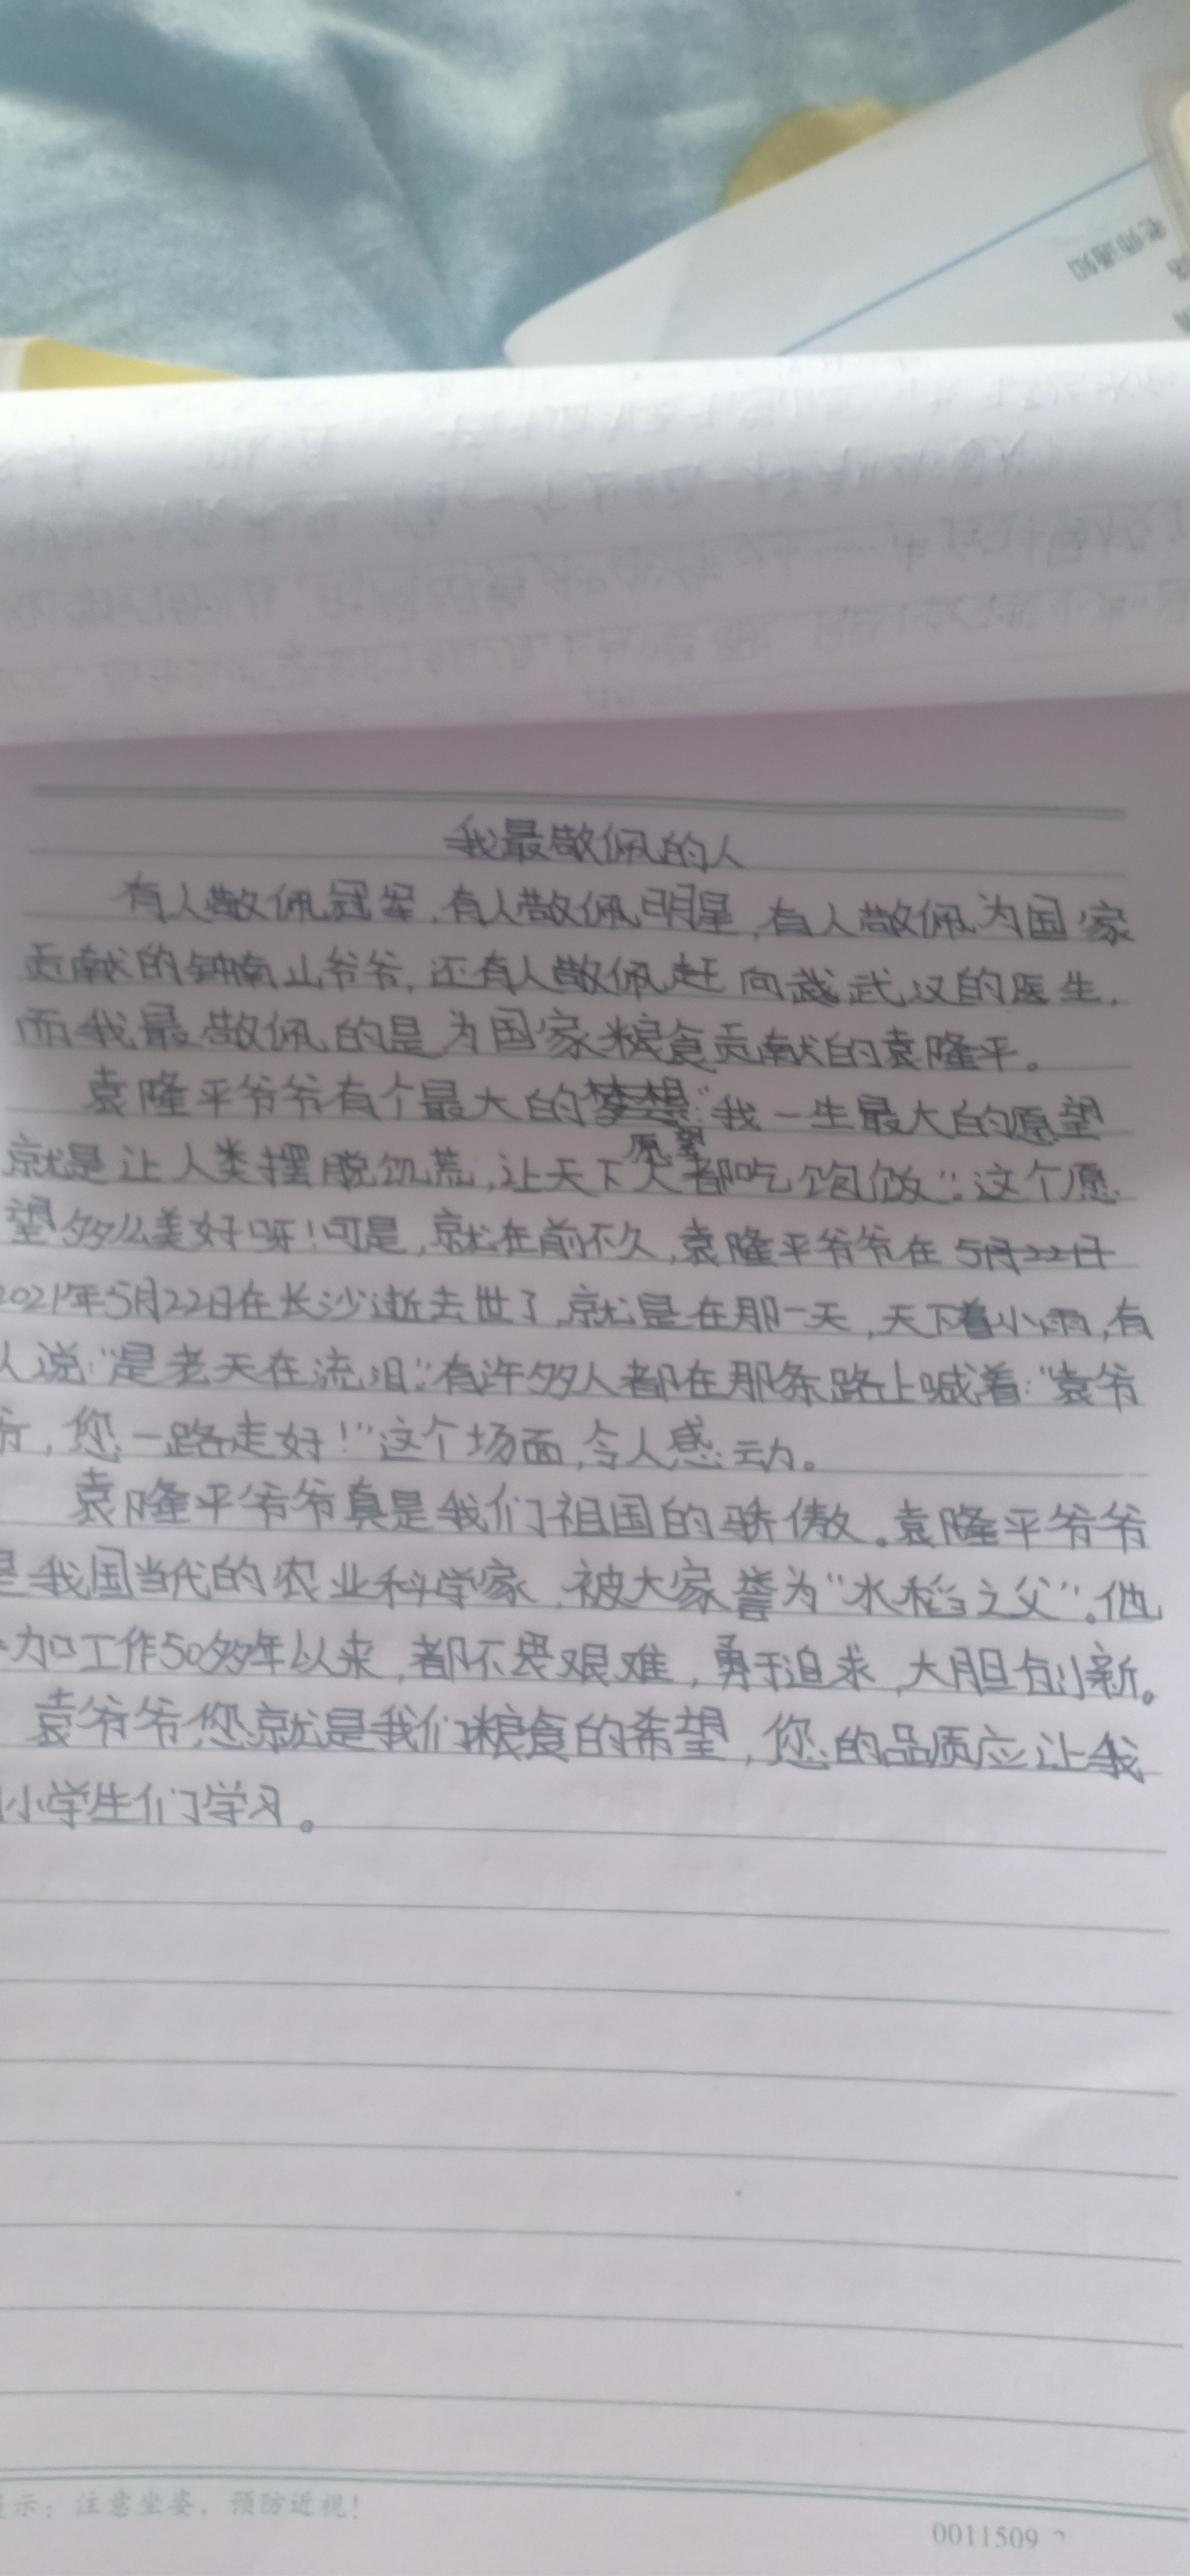 老师通知
我最敬佩的人
有人敬佩冠军,有人敬佩明星,有人敬佩为国家
贡献的钟南山爷爷,还有人敬佩赶向武汉的医生,
而我最敬佩的是为国家粮食贡献的袁隆平。
袁隆平爷爷有个最大的梦想:"我一生最大的愿望
愿望
就是让人类摆脱饥荒,让天下人都吃饱饭"。这个愿
望多么美好呀!可是,就在前不久,袁隆平爷爷在5月22日
2021年5月22日在长沙逝去世了,就是在那一天,天下着小雨,有
人说:"是老天在流泪",有许多人都在那条路上喊着:"袁爷
爷,您一路走好!"这个场面,令人感动。
袁隆平爷爷真是我们祖国的骄傲。袁隆平爷爷
是我国当代的农业科学家,被大家誉为"水稻之父"。他
加工作50多年以来,都不畏艰难,勇于追求,大胆创新。
袁爷爷您就是我们粮食的希望,您的品质应让我
小学生们学习。
示:注意坐姿,预防近视!
0011509